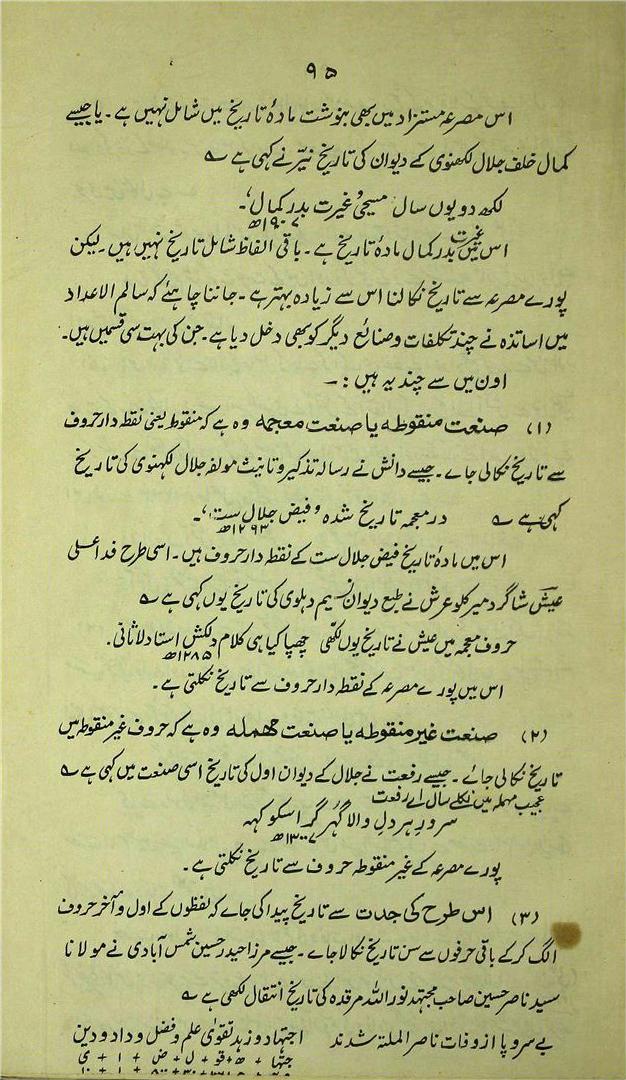 ۹۵
اس مصرعہ مستزاد میں بھی بنوشت مادۂ تاریخ میں شامل نہیں ہے۔ یا جیسے
کمال خلف جلال لکھنوی کے دیوان کی تاریخ نیّر نے کہی ہے ؎
لکھ دو یوں سال مسیحی غیرت بدر کمال۔
۱۹۰۷ھ
اس میں غیرت بدر کمال مادۂ تاریخ ہے۔ باقی الفاظ شامل تاریخ نہیں ہیں۔ لیکن
پورے مصرعہ سے تاریخ نکالنا اس سے زیادہ بہتر ہے۔ جاننا چاہئے کہ سالم الاعداد
میں اساتذہ نے چند تکلفات و صنائع دیگر کو بھی دخل دیا ہے۔ جن کی بہت سی قسمیں ہیں۔
اون میں سے چند یہ ہیں :۔
(۱) صنعت منقوطہ یا صنعت معجمہ وہ ہے کہ منقوط یعنی نقطہ دار حروف
سے تاریخ نکالی جاے۔ جیسے دانش نے رسالہ تذکیر و تانیث مولفہ جلال لکھنوی کی تاریخ
کہی ہے ؎ در معجمہ تاریخ شدہ فیض جلال ست،۔
۱۲۹۳ھ
اس میں مادۂ تاریخ فیض جلال ست کے نقطہ دار حروف ہیں۔ اسی طرح فدا علی
عیش شاگرد میر کلو عرش نے طبع دیوان نسیم دہلوی کی تاریخ یوں کہی ہے ؎
حروف معجمہ میں عیش نے تاریخ یوں لکھی چھپا کیا ہی کلام دلکش استاد لاثانی۔
۱۲۸۵ھ
اس میں پورے مصرعہ کے نقطہ دار حروف سے تاریخ نکلتی ہے۔
(۲) صنعت غیر منقوطہ یا صنعت مہملہ وہ ہے کہ حروف غیر منقوطہ میں
تاریخ نکالی جائے۔ جیسے رفعت نے جلال کے دیوان اول کی تاریخ اسی صنعت میں کہی ہے ؎
عجیب مہملہ میں نکلے سال اے رفعت
سرور ہر دل والا گہر گر اسکو کہہ
۱۳۰۰ھ
پورے مصرعہ کے غیر منقوطہ حروف سے تاریخ نکلتی ہے۔
(۳) اس طرح کی جدت سے تاریخ پیدا کی جاے کہ لفظوں کے اول و آخر حروف
الگ کر کے باقی حرفوں سے سن تاریخ نکالا جاے۔ جیسے مرزا حیدر حسین شمس آبادی نے مولانا
سید ناصر حسین صاحب مجتہد نور اللہ مرقدہ کی تاریخ انتقال لکھی ہے ؎
بے سر و پا از وفات ناصر الملۃ شدند اجتہاد و زہد تقوی علم و فضل و داد و دین
جتہا + ھ + قو + ل + ض + ا + ی